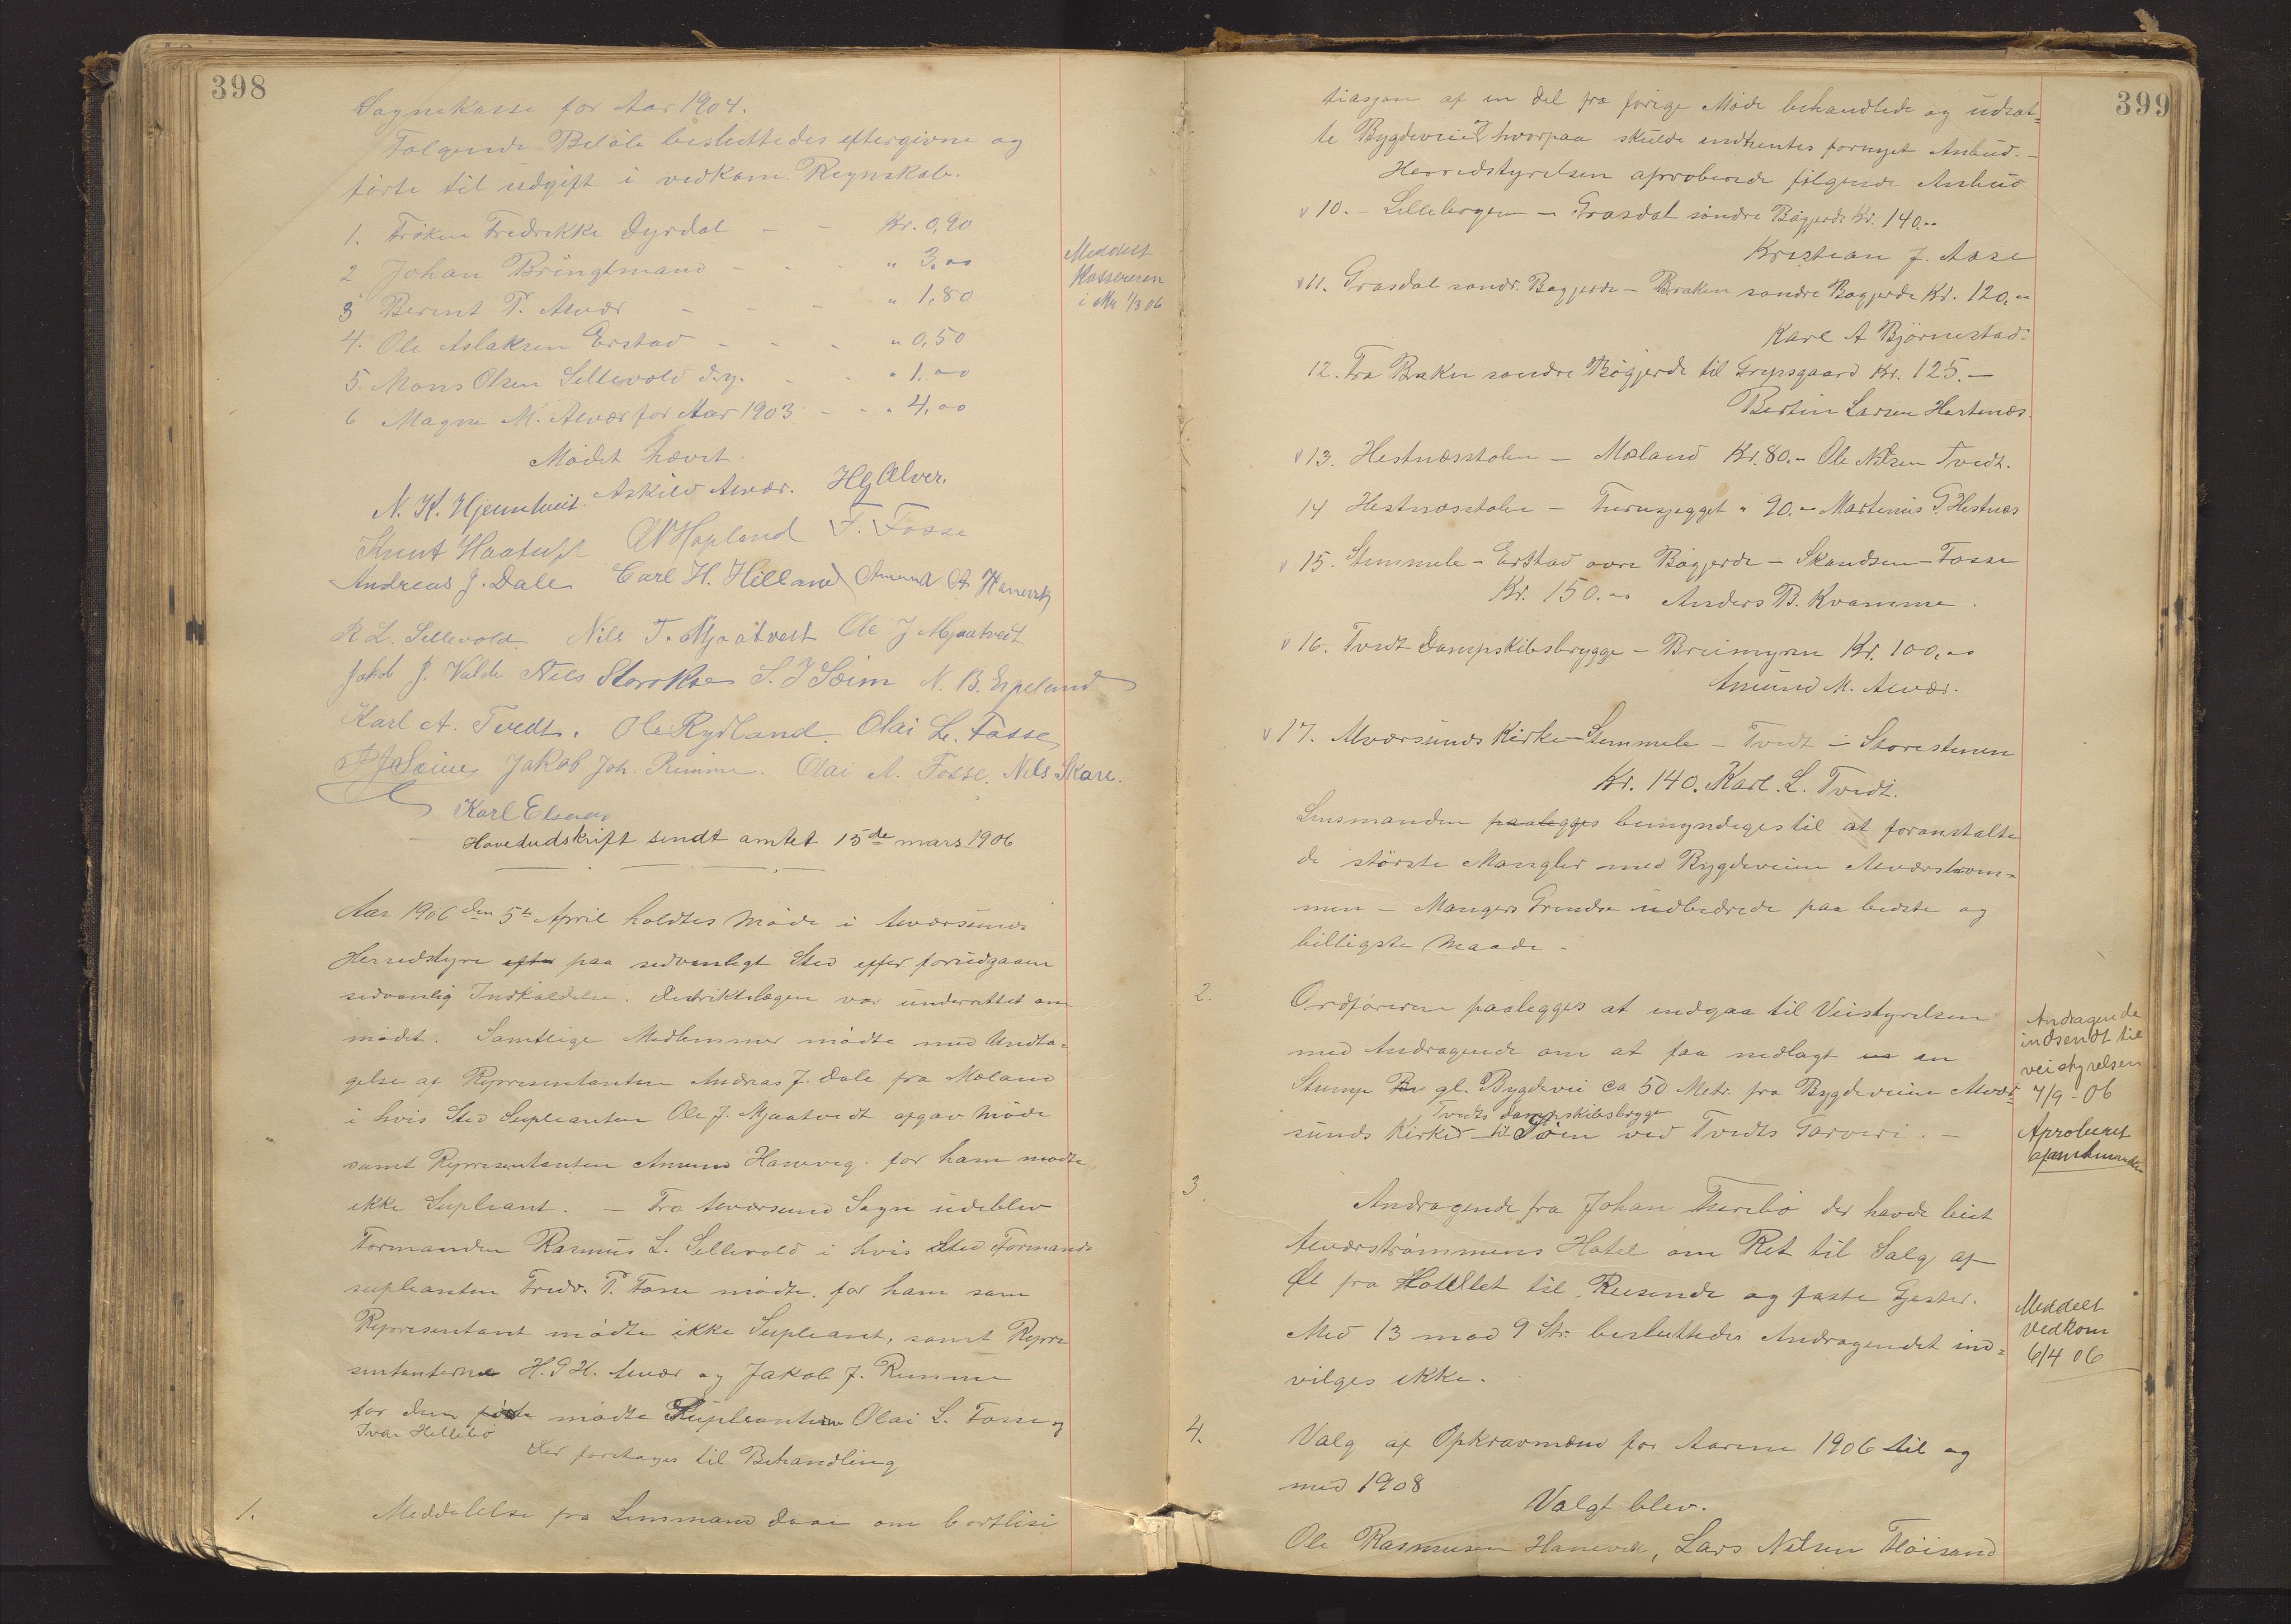 398
Sognekasse for Aar 1904.
Følgende Beløb besluttedes eftergivne og
førte til udgift i vedkom. Regnskab.
1. Frøken Fredrikke Dyrdal - - Kr. 0,90
2 Johan Bringtmand - - - " 3,00
3 Berent P. Alvær - - - " 1,80
Meddelt
Kassereren
i Mk 1/3 06
4. Ole Aslaksen Erstad - - - " 0,50
5. Mons Olsen Sellevold d.y. - - " 1,00
6 Magne M. Alvær for Aar 1903 - - " 4,00
Mødet hævet.
N. K. Hjelmtveit Askild Alvær. HG Alver.
Knut Haatuft AN Hopland F. Fosse
Andreas J. Dale Carl H. Hilland Amund A Hanevik
R L. Sellevold Nils T. Mjaatvedt Ole J Mjaatvedt
Jakob J. Valde Nils Storoksen S. J Seim N. B. Espeland
Karl A. Tvedt. Ole Rydland. Olai L. Fosse
Seim Jakob Joh. Rimme. Olai A. Fosse. Nils Skare.
Karl
Hovedudskrift sendt amtet 15de mars 1906
Aar 1906 den 5te April holdtes Møde i Alværsunds
Herredstyre efter paa sedvanligt Sted efter forudgaaen
sedvanlig Indkaldelse. Distriktslægen var underrettet om
mødet. Samtlige Medlemmer mødte med Undta=
gelse af Representanten Andreas J. Dale fra Mæland
i hvis Sted Supleanten Ole J. Mjaatvedt afgav Møde
samt Representanten Amund Hanevig. for ham mødte
ikke Supleant. - Fra Alværsund Sogn udeblev
Formanden Rasmus L. Sellevold i hvis Sted Formands
supleanten Fredr. T. Fosse mødte. for ham som
Representant mødte ikke Supleant, samt Repre
sentanterne H. G H. Alvær og Jakob J. Rimme
for dem mødte Supleanten Olai L. Fosse og
Ivar Hellebø
Der foretages til Behandling
1. Meddelelse fra Lensmand Daae om bortlisi
399
tiasjon af en del fra forrige Møde behandlede og udsat=
te Bygdeveie hvorpaa skulde indhentes fornyet Anbud.-
Herredstyrelsen aproberede følgende Anbud
v 10. - Lillebergen - Grasdal søndre Bøgjerde Kr. 140.00
Kristian J. Aase
v 11. Grasdal søndr. Bøgjerde - Braken søndre Bøgjerde Kr. 120,00
Karl A Bjørnestad.
12. Fra Braken søndre Bøgjerde til Gripsgaard Kr. 125.-
Bertin Larsen Hestenæs.
v 13. Hestnæsstølen - Mæland Kr. 80.- Ole Nilsen Tvedt.
14 Hestnæsstølen - " 90.- Martinus P. Hestnæs
v 15. Stemmele - Erstad øvre Bøgjerde - Skandsen - Fosse
Kr. 150.00 Anders B. Kvamme.
v 16. Tvedt Dampskibsbrygge - Breimyren Kr. 100,00
Amund M. Alvær.
v 17. Alværsunds Kirke - Stemmele - Tvedt - Storestenen
Kr. 140. Karl. L. Tvedt.
Lensmanden paalegges bemyndiges til at foranstalte
de største Mangler med Bygdeveien Alværstrøm=
men - Mangers Grendse udbedrede paa bedste og
billigste Maade.
2. Ordføreren paalegges at indgaa til Veistyrelsen
med Andragende om at faa nedlagt en
Stump gl. Bygdevei ca 50 Metr. fra Bygdeveien Alvær=
Tvedts Dampskibsbrygge
sunds Kirke til Søen ved Tvedts Garveri. -
Andragende
indsendt til
veistyrelsen
7/9 - 06
Aproberet
af amtmanden
3. Andragende fra Johan Therebø der havde leiet
Alværstrømmens Hotel om Ret til Salg af
Øl fra Hotellet til Reisende og faste Gjester.
Med 13 mod 9 St. besluttedes Andragendet ind=
vilges ikke.
Meddelt
vedkom
6/4 06
4. Valg af Opkrævmænd for Aarene 1906 til og
med 1908
Valgt blev.
Ole Rasmusen Hanevik, Lars Nilsen Fløisand